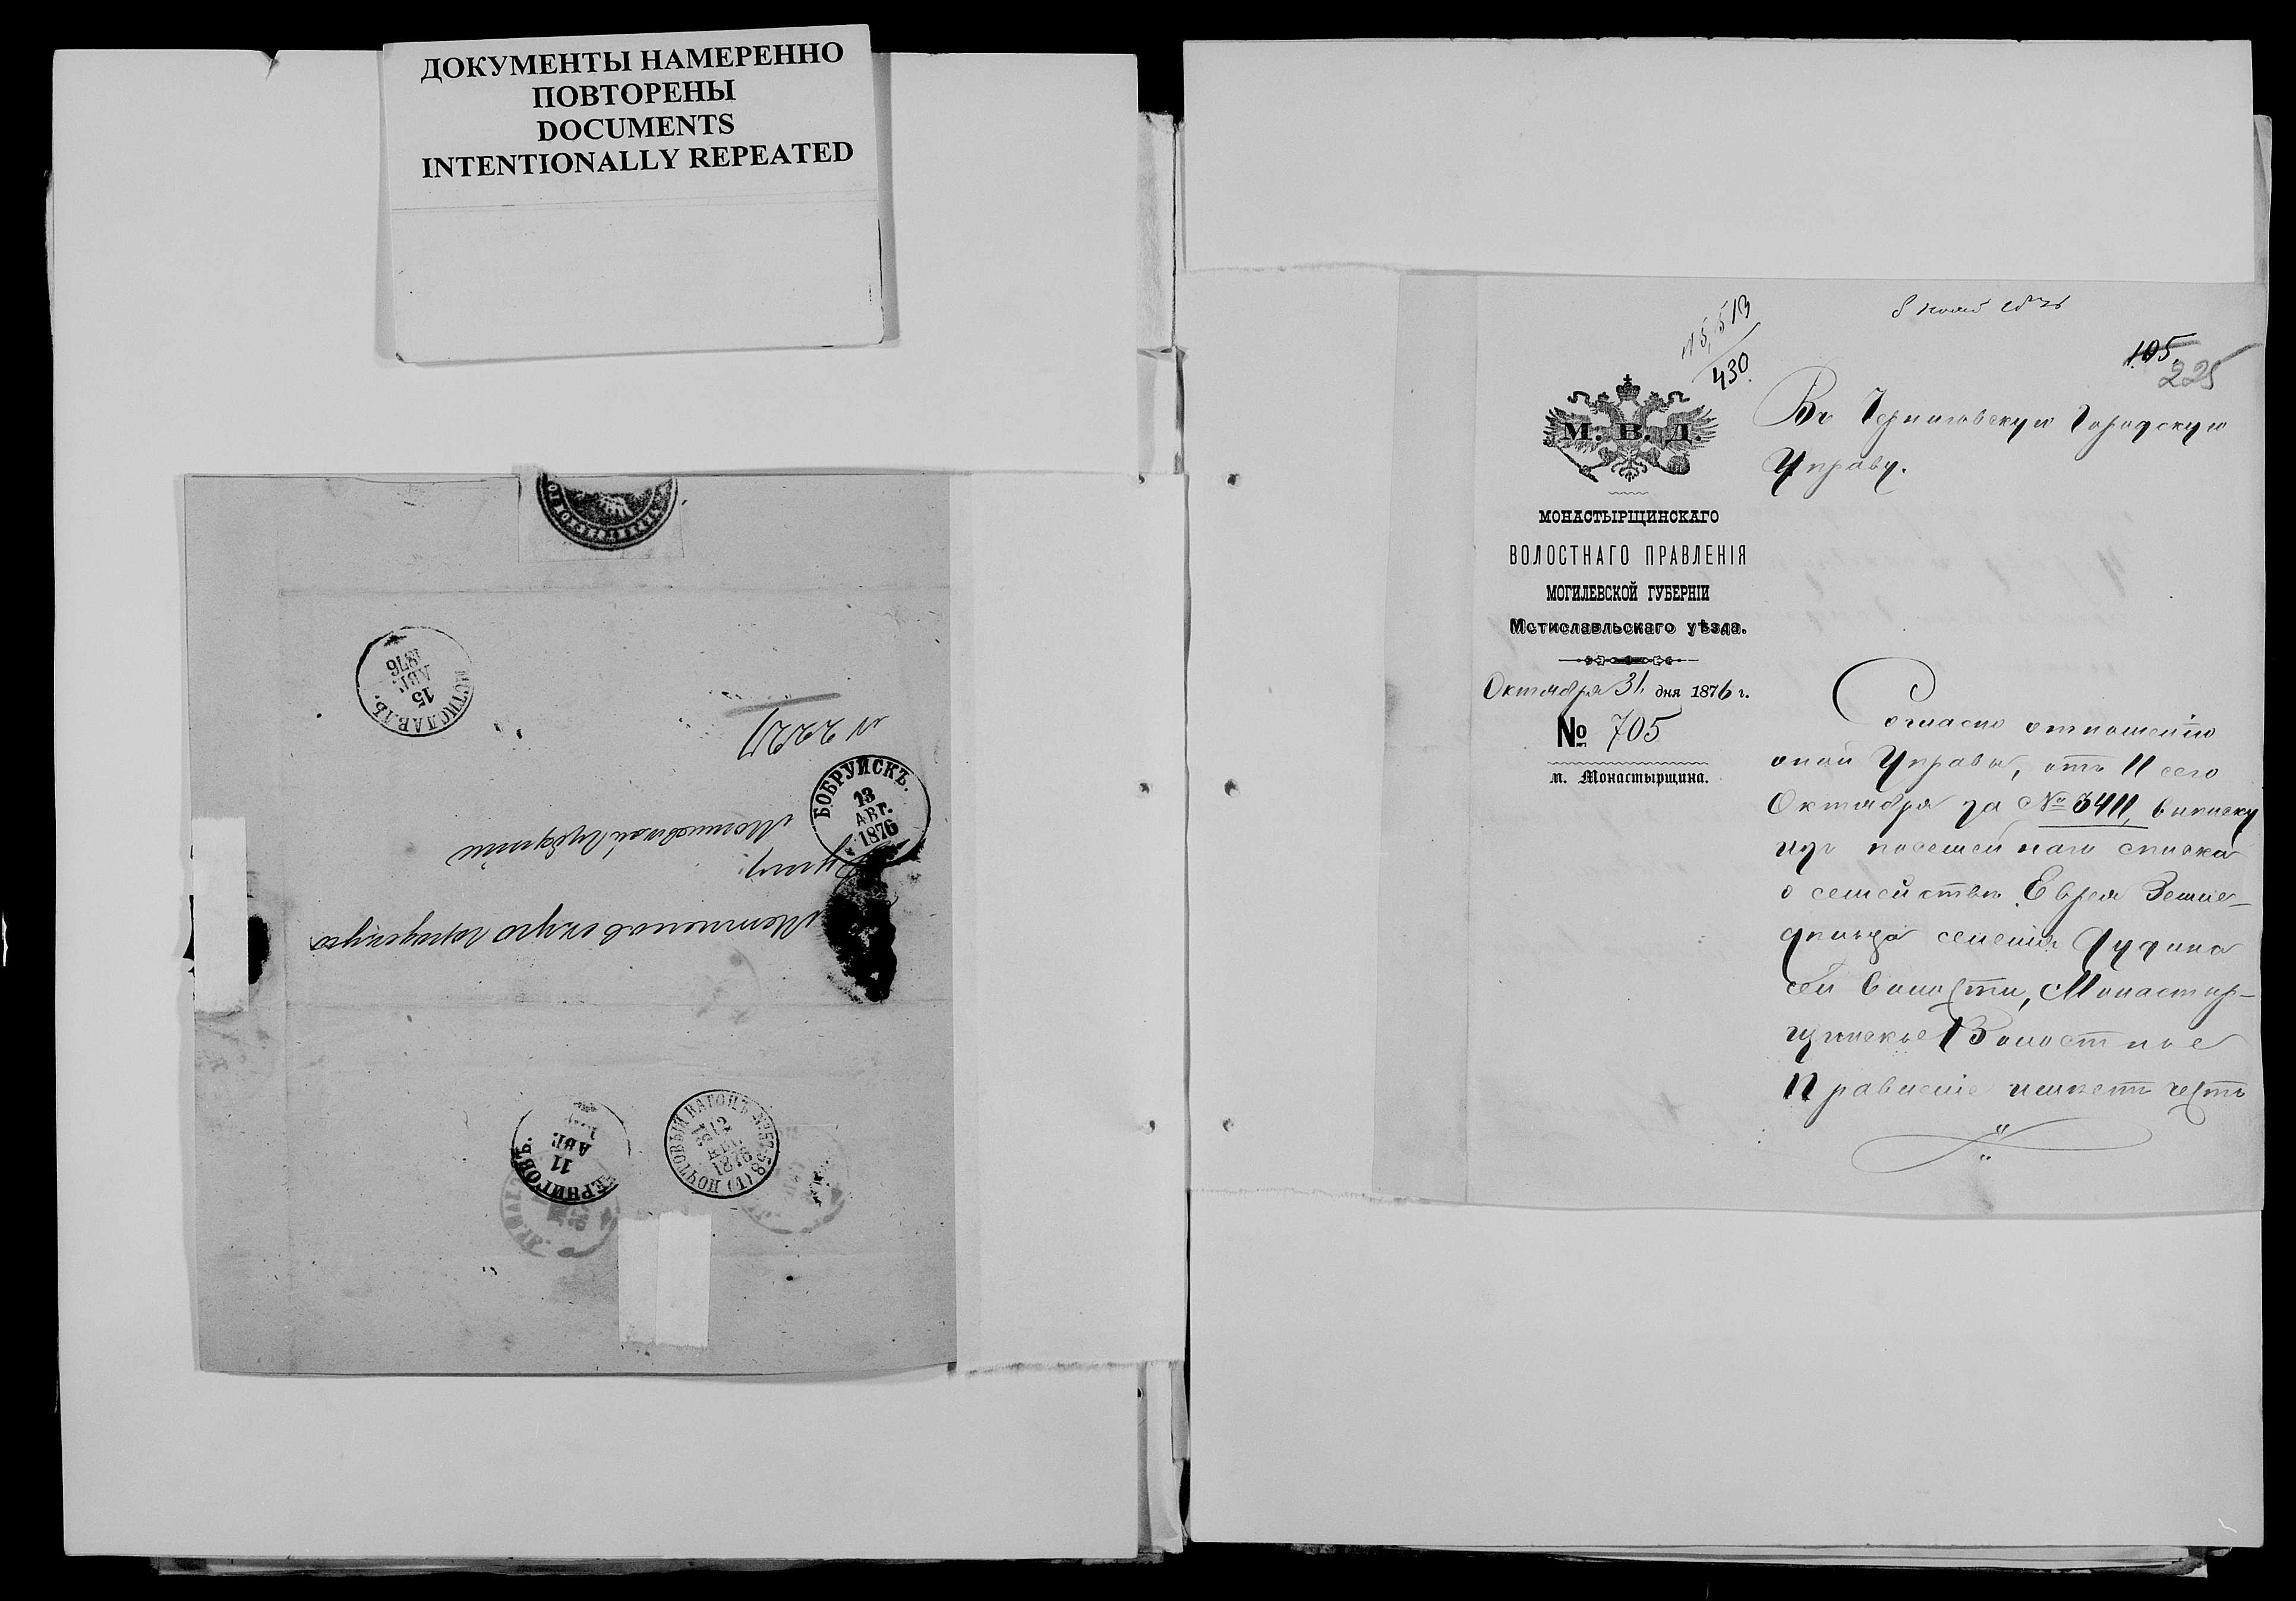 ДОКУМЕНТЫ НАМЕРЕННО
ПОВТОРЕНЫ
DOCUMENTS
INTENTIONALLY REPEATED
МСТИСЛАВЛЬ.
15
АВГ.
1876
N 2227
БОБРУЙСКЪ.
13
АВГ.
1876
Могилевской Губерніи
Мстиславскую городскую
Думу.
ЧЕРНИГОВЪ.
11
АВГ.
ПОЧТОВЫЙ ВАГОНЪ № 57-58 (1)
12
1876
8 Нояб 1876
15,513
430.
105.
225
М. В. Д.
МОНАСТЫРЩИНСКАГО
ВОЛОСТНАГО ПРАВЛЕНІЯ
МОГИЛЕВСКОЙ ГУБЕРНІИ
Мстиславльскаго уѣзда.
Октября 31 дня 1876 г.
№ 705
м. Монастырщина.
Въ Черниговскую Городскую
Управу.
Согласно отношенію
оной Управы, отъ 11 сего
Октября за № 3411, выписку
изъ посемейнаго списка
о семействѣ Еврея Земле-
дѣльца селенія Дудина
сей волости, Монастыр-
щинское Волостное
Правленіе имѣетъ честь